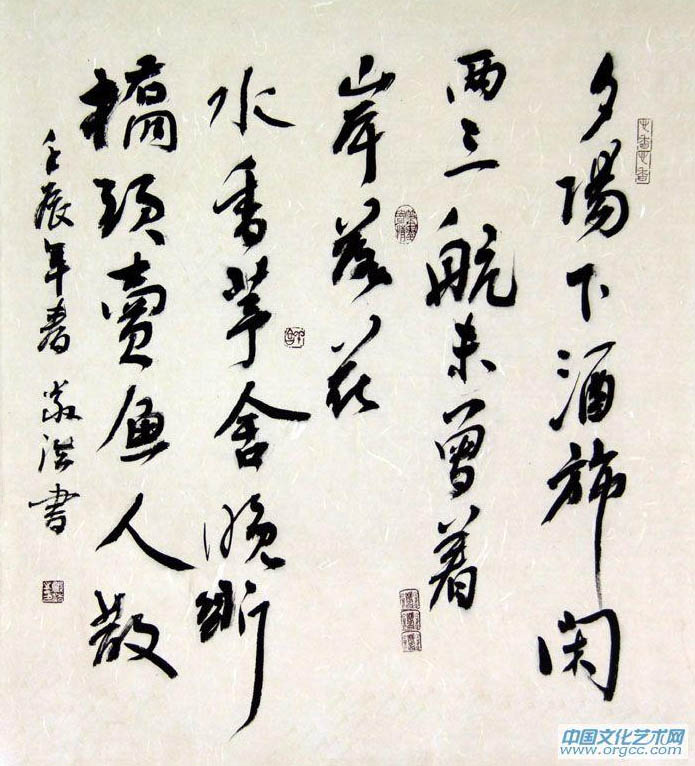 夕陽下酒旆闲
两三航未曾着
岸落花
水香茅舍晚断
橋頭賣鱼人散
壬辰年春 洪書
中国文化艺术网
www.orgcc.com